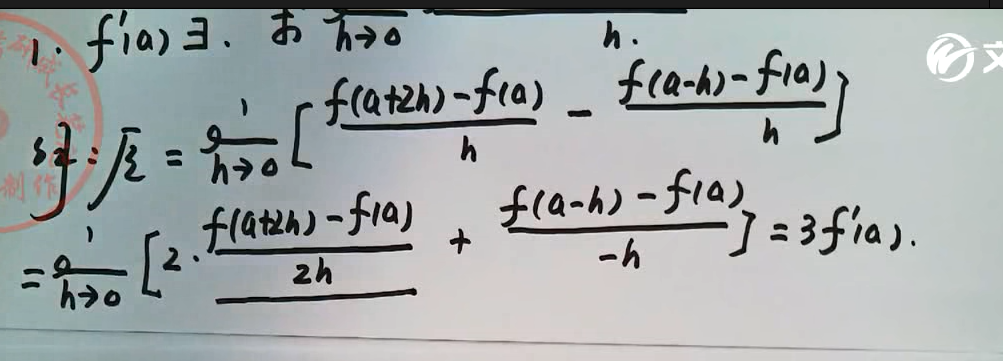 1. f'(a)∃. 求 lim h→0 h.
解: 原 = lim h→0 [ (f(a+2h)-f(a))/h - (f(a-h)-f(a))/h ]
= lim h→0 [ 2· (f(a+2h)-f(a))/2h + (f(a-h)-f(a))/-h ] = 3f'(a).
制作
文